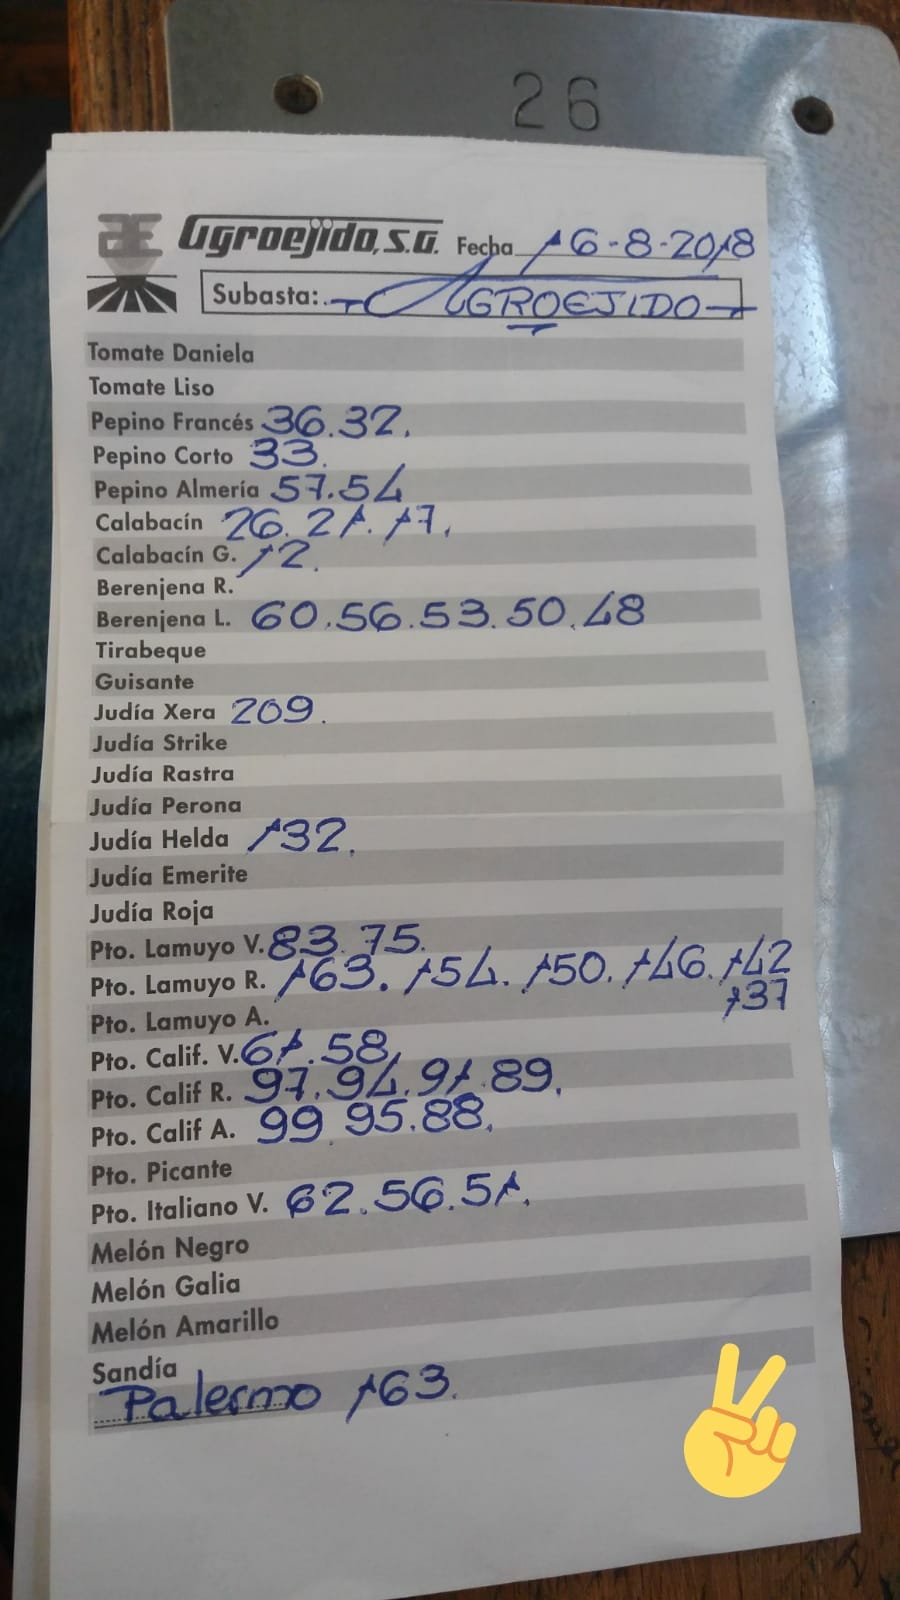 26
Agroejido, S.A. Fecha 16-8-2018
Subasta: AGROEJIDO
Tomate Daniela
Tomate Liso
Pepino Francés 36.32.
Pepino Corto 33.
Pepino Almería 57.54
Calabacín 26.21.17.
Calabacín G. 12.
Berenjena R.
Berenjena L. 60.56.53.50.48
Tirabeque
Guisante
Judía Xera 209.
Judía Strike
Judía Rastra
Judía Perona
Judía Helda 132.
Judía Emerite
Judía Roja
Pto. Lamuyo V. 83.75.
Pto. Lamuyo R. 163. 154. 150. 146. 142
137
Pto. Lamuyo A.
Pto. Calif. V. 61.58
Pto. Calif R. 97.94.91.89.
Pto. Calif A. 99 95.88.
Pto. Picante
Pto. Italiano V. 62.56.51.
Melón Negro
Melón Galia
Melón Amarillo
Sandía
Palermo 163.